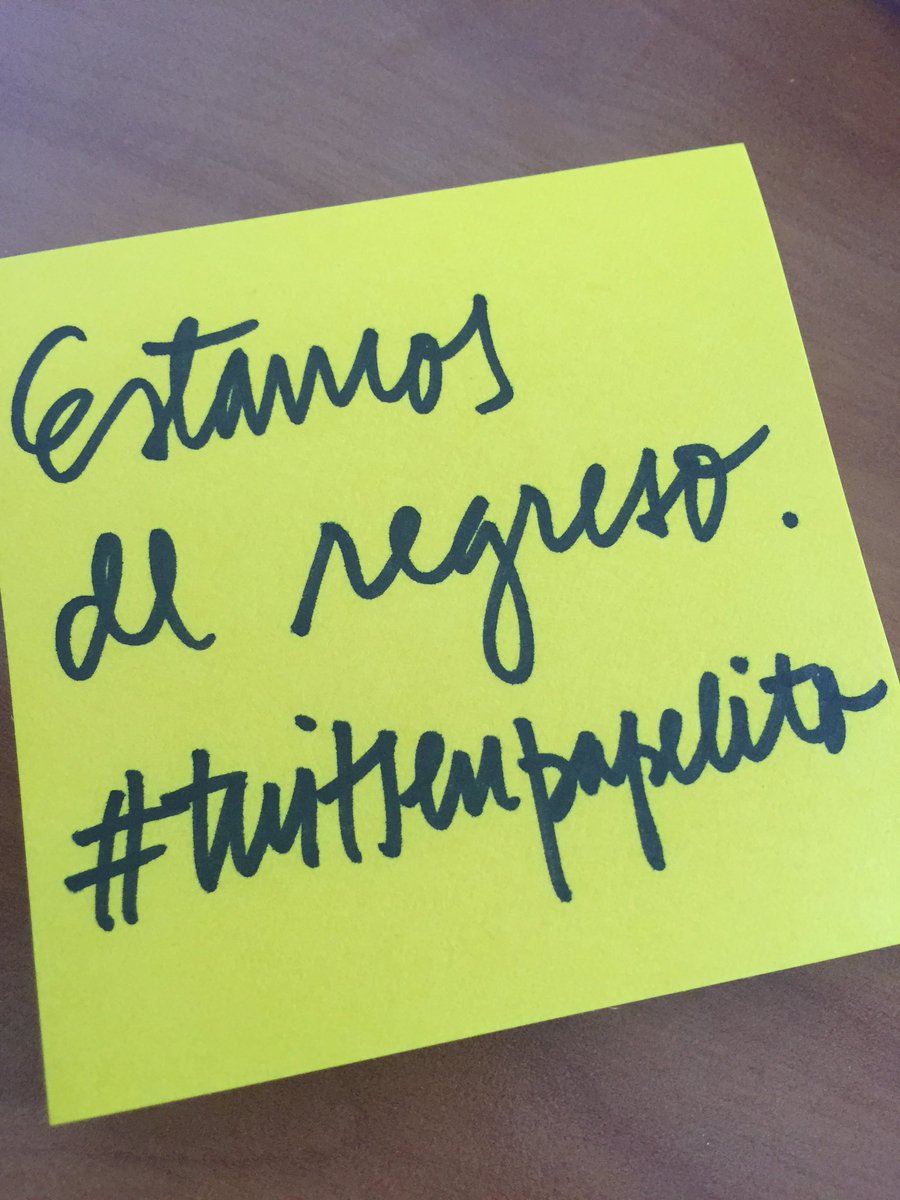 Estamos
de regreso.
#tuitsenpapelito